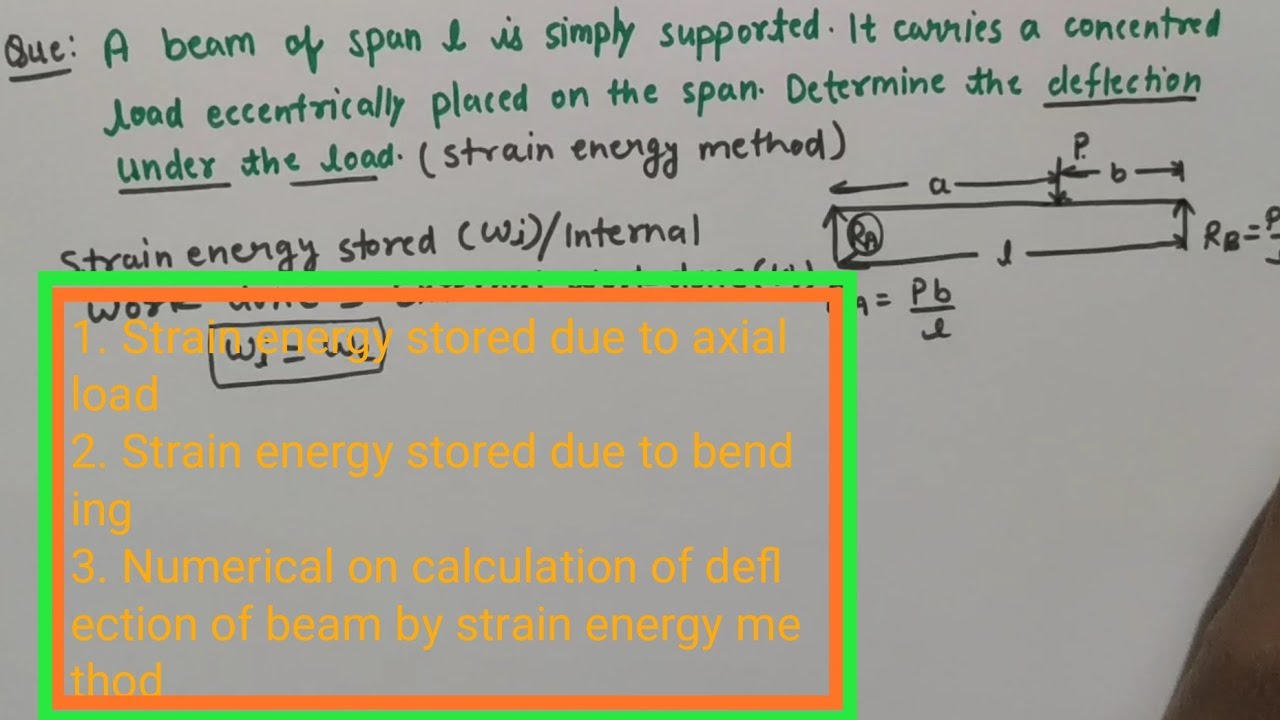 Que: A beam of span l is simply supported. It carries a concentred
load eccentrically placed on the span. Determine the deflection
under the load. (strain energy method)
P
a
b
Strain energy stored (Wi)/Internal
RA
l
RB = P
Work done =
A = Pb/l
Wi = W
1. Strain energy stored due to axial
load
2. Strain energy stored due to bend
ing
3. Numerical on calculation of defl
ection of beam by strain energy me
thod